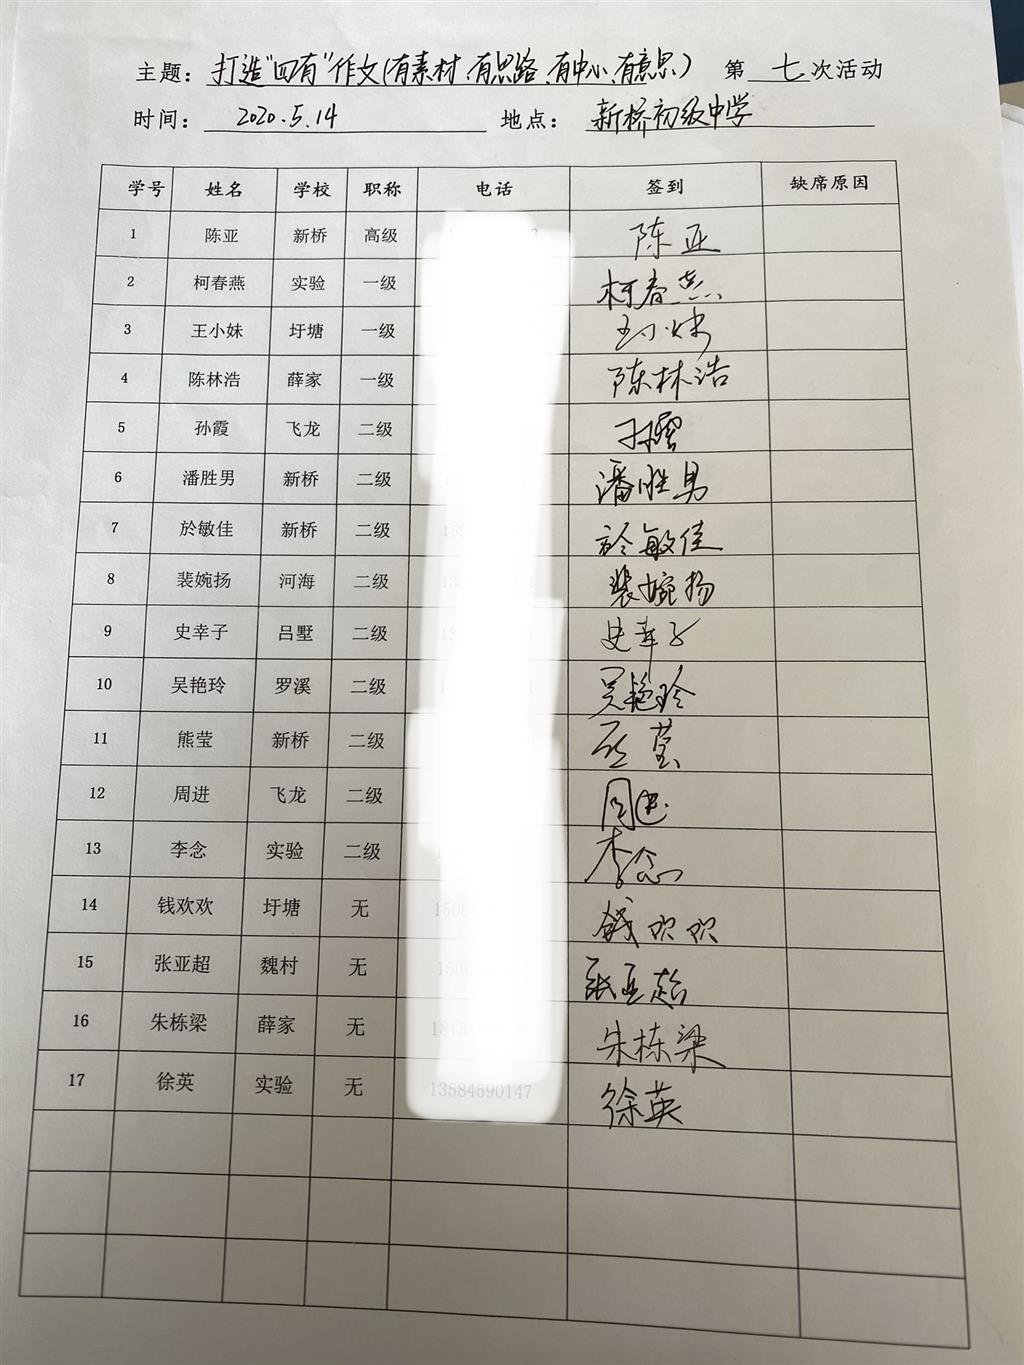 主题：打造“四有”作文(有素材、有思路、有中心、有意思) 第 七 次活动
时间： 2020.5.14 地点： 新桥初级中学
学号 姓名 学校 职称 电话 签到 缺席原因
1 陈亚 新桥 高级 陈亚
2 柯春燕 实验 一级 柯春燕
3 王小妹 圩塘 一级 王小妹
4 陈林浩 薛家 一级 陈林浩
5 孙霞 飞龙 二级 孙霞
6 潘胜男 新桥 二级 潘胜男
7 於敏佳 新桥 二级 於敏佳
8 裴婉扬 河海 二级 裴婉扬
9 史幸子 吕墅 二级 史幸子
10 吴艳玲 罗溪 二级 吴艳玲
11 熊莹 新桥 二级 熊莹
12 周进 飞龙 二级 周进
13 李念 实验 二级 李念
14 钱欢欢 圩塘 无 钱欢欢
15 张亚超 魏村 无 张亚超
16 朱栋梁 薛家 无 朱栋梁
17 徐英 实验 无 13584590147 徐英